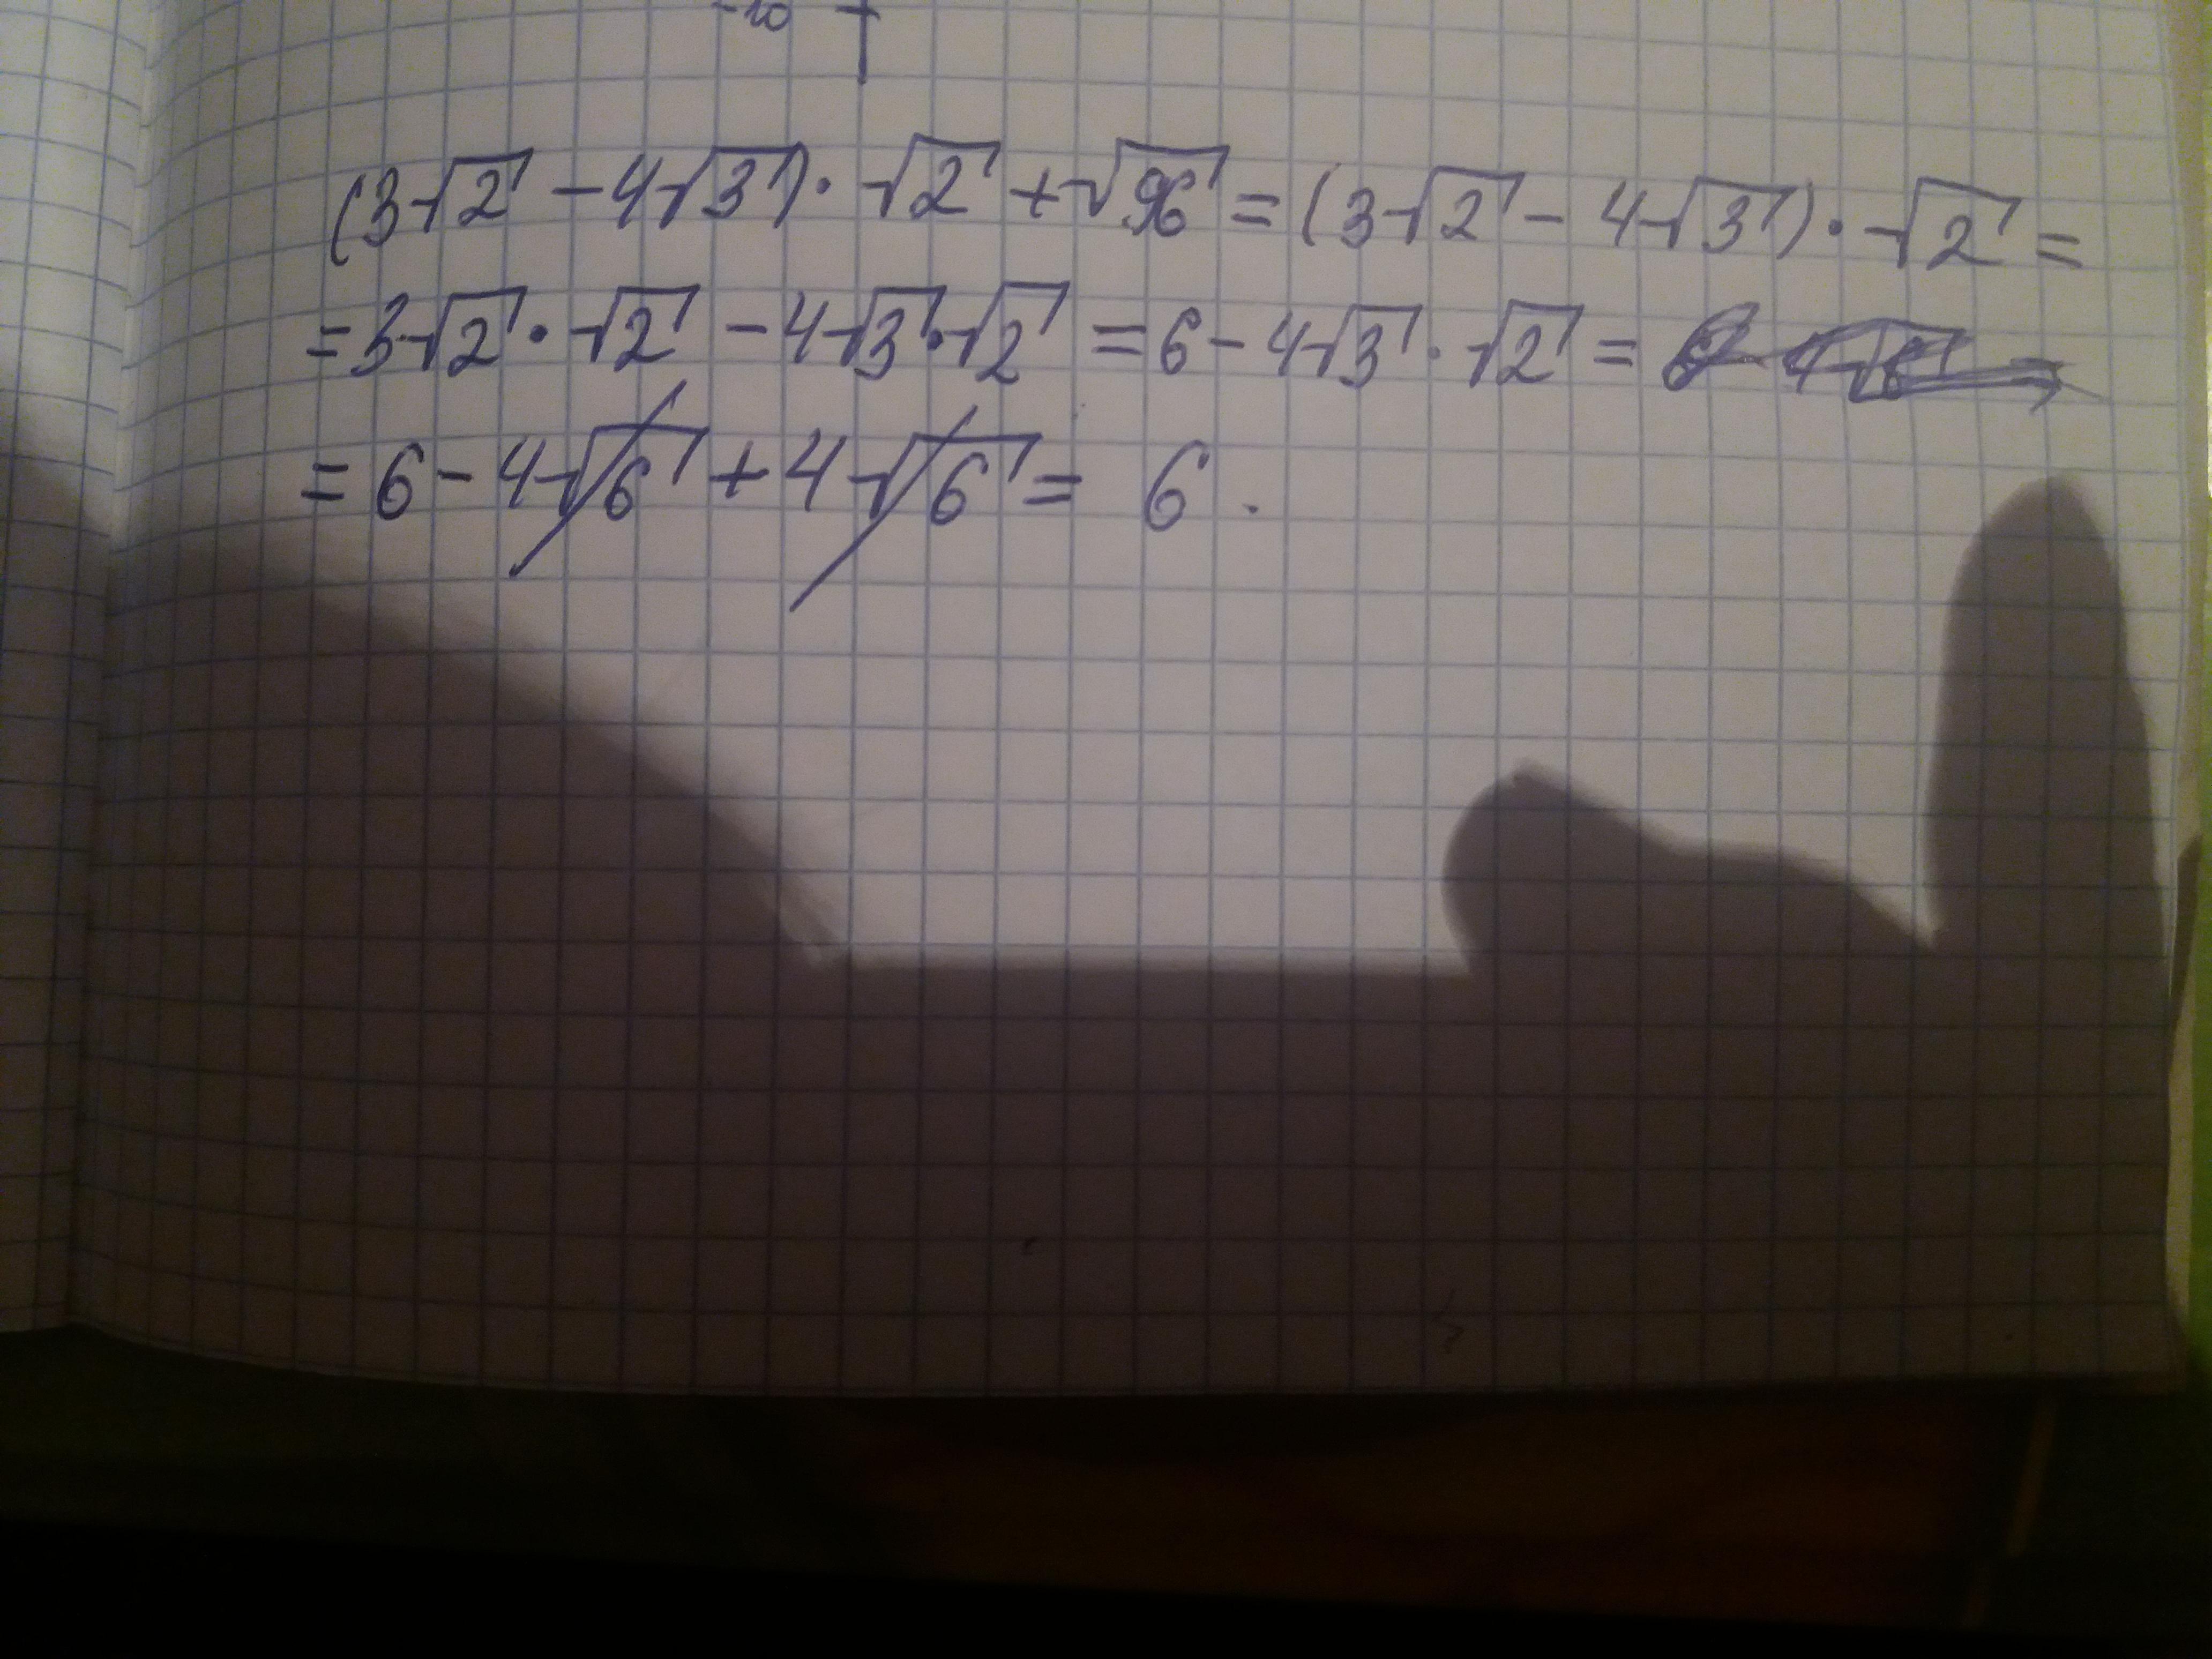 -10
(3√2 - 4√3) · √2 + √96 = (3√2 - 4√3) · √2 =
= 3√2 · √2 - 4√3 · √2 = 6 - 4√3 · √2 =
= 6 - 4√6 + 4√6 = 6.